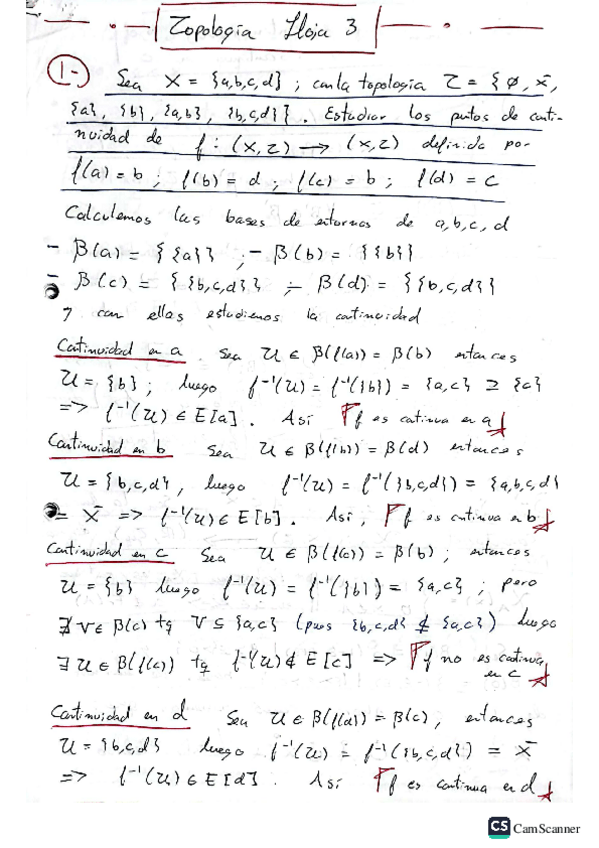 Topología Hoja 3
1- Sea X = {a,b,c,d} ; con la topología τ = {∅, X,
{a}, {b}, {a,b}, {b,c,d}}. Estudiar los putos de conti-
nuidad de f: (X,τ) → (X,τ) definida por
f(a) = b ; f(b) = d ; f(c) = b ; f(d) = c
Calculemos las bases de entornos de a,b,c,d
- β(a) = {{a}} ; - β(b) = {{b}}
- β(c) = {{b,c,d}} ; - β(d) = {{b,c,d}}
y con ellas estudiemos la continuidad
Continuidad en a. Sea U ∈ β(f(a)) = β(b) entonces
U = {b} ; luego f⁻¹(U) = f⁻¹({b}) = {a,c} ⊇ {a}
=> f⁻¹(U) ∈ E[a]. Así f es continua en a
Continuidad en b Sea U ∈ β(f(b)) = β(d) entonces
U = {b,c,d}, luego f⁻¹(U) = f⁻¹({b,c,d}) = {a,b,c,d}
= X => f⁻¹(U) ∈ E[b]. Así, f es continua en b
Continuidad en c Sea U ∈ β(f(c)) = β(b) ; entonces
U = {b} luego f⁻¹(U) = f⁻¹({b}) = {a,c} ; pero
∄ V ∈ β(c) tq V ⊆ {a,c} (pues {b,c,d} ⊄ {a,c}) luego
∃ U ∈ β(f(c)) tq f⁻¹(U) ∉ E[c] => f no es continua
en c
Continuidad en d Sea U ∈ β(f(d)) = β(c), entonces
U = {b,c,d} luego f⁻¹(U) = f⁻¹({b,c,d}) = X
=> f⁻¹(U) ∈ E[d]. Así f es continua en d
CS CamScanner